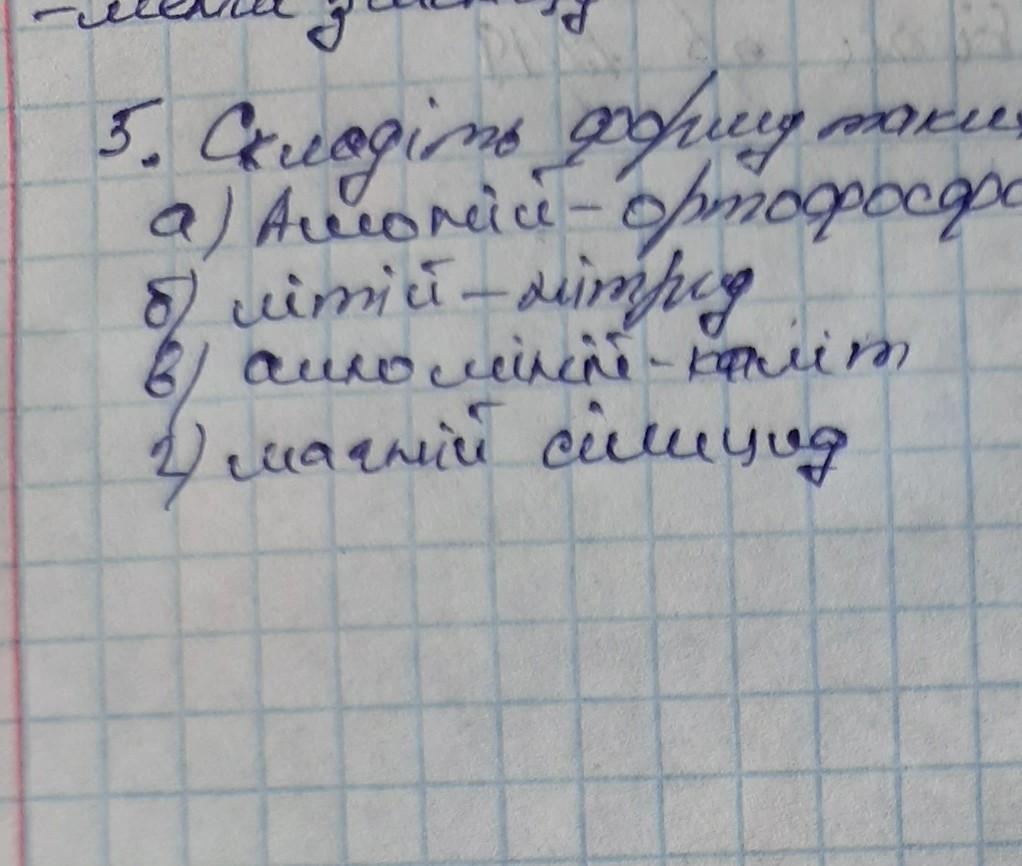 5. Складіть форму таких
а) Амоній - ортофосфо
б) літій - нітрид
в) алюміній - 
г) магній сіліцид